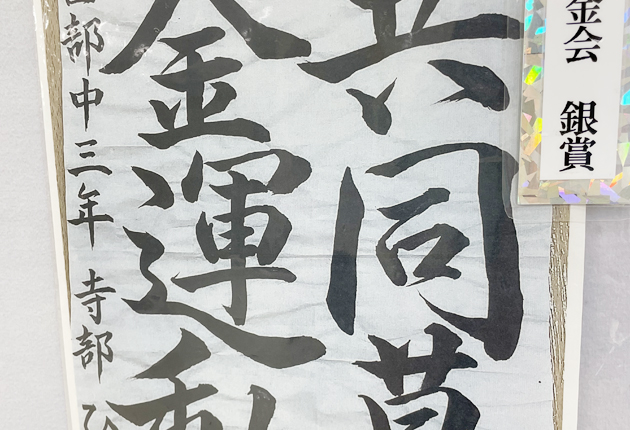 金会 銀賞
共同募
金運動
部中三年 寺部 ひ